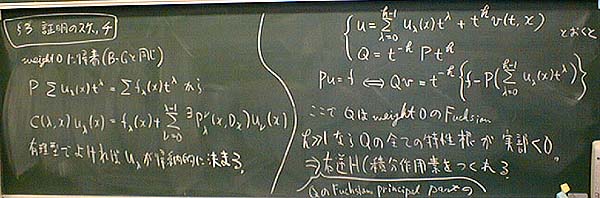 §3 証明のスケッチ
weight 0 に帰着 (B-Gと同じ)
P Σ u_λ(x) t^λ = Σ f_λ(x) t^λ から
C(λ, x) u_λ(x) = f_λ(x) + Σ_{ν=0}^{λ-1} ∃P_ν^λ(x, D_x) u_ν(x)
有理型でよければ u_λ が帰納的に決まる.
{ u = Σ_{λ=0}^{h-1} u_λ(x) t^λ + t^h v(t, x)
Q = t^{-h} P t^h とおくと
Pu = f ⇔ Qv = t^{-h} { f - P( Σ_{λ=0}^{h-1} u_λ(x) t^λ ) }
ここで Q は weight 0 の Fuchsian
h≫1 なら Q の全ての特性根が 実部 < 0.
⇒ 右逆 H (積分作用素をつくれる.
Q の Fuchsian principal part の